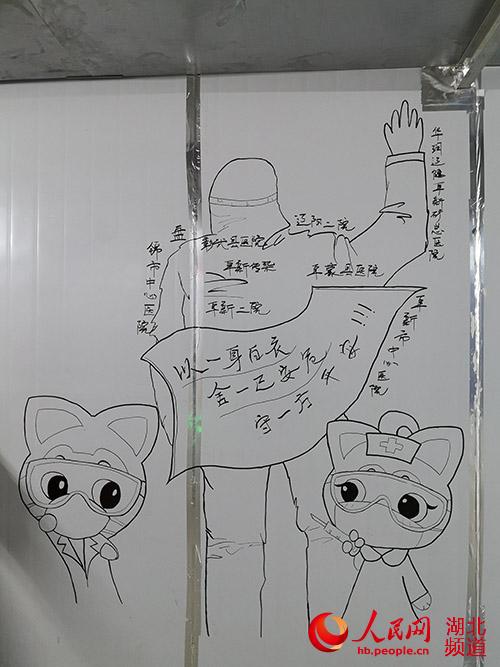 华润辽健阜新矿总医院
辽阳二院
彰武县医院
锦市中心医院
阜新传染
阜蒙县医院
阜新二院
阜新市中心医院
以一身白衣
舍一己安危
守一方
人民网 湖北
hb.people.cn 频道